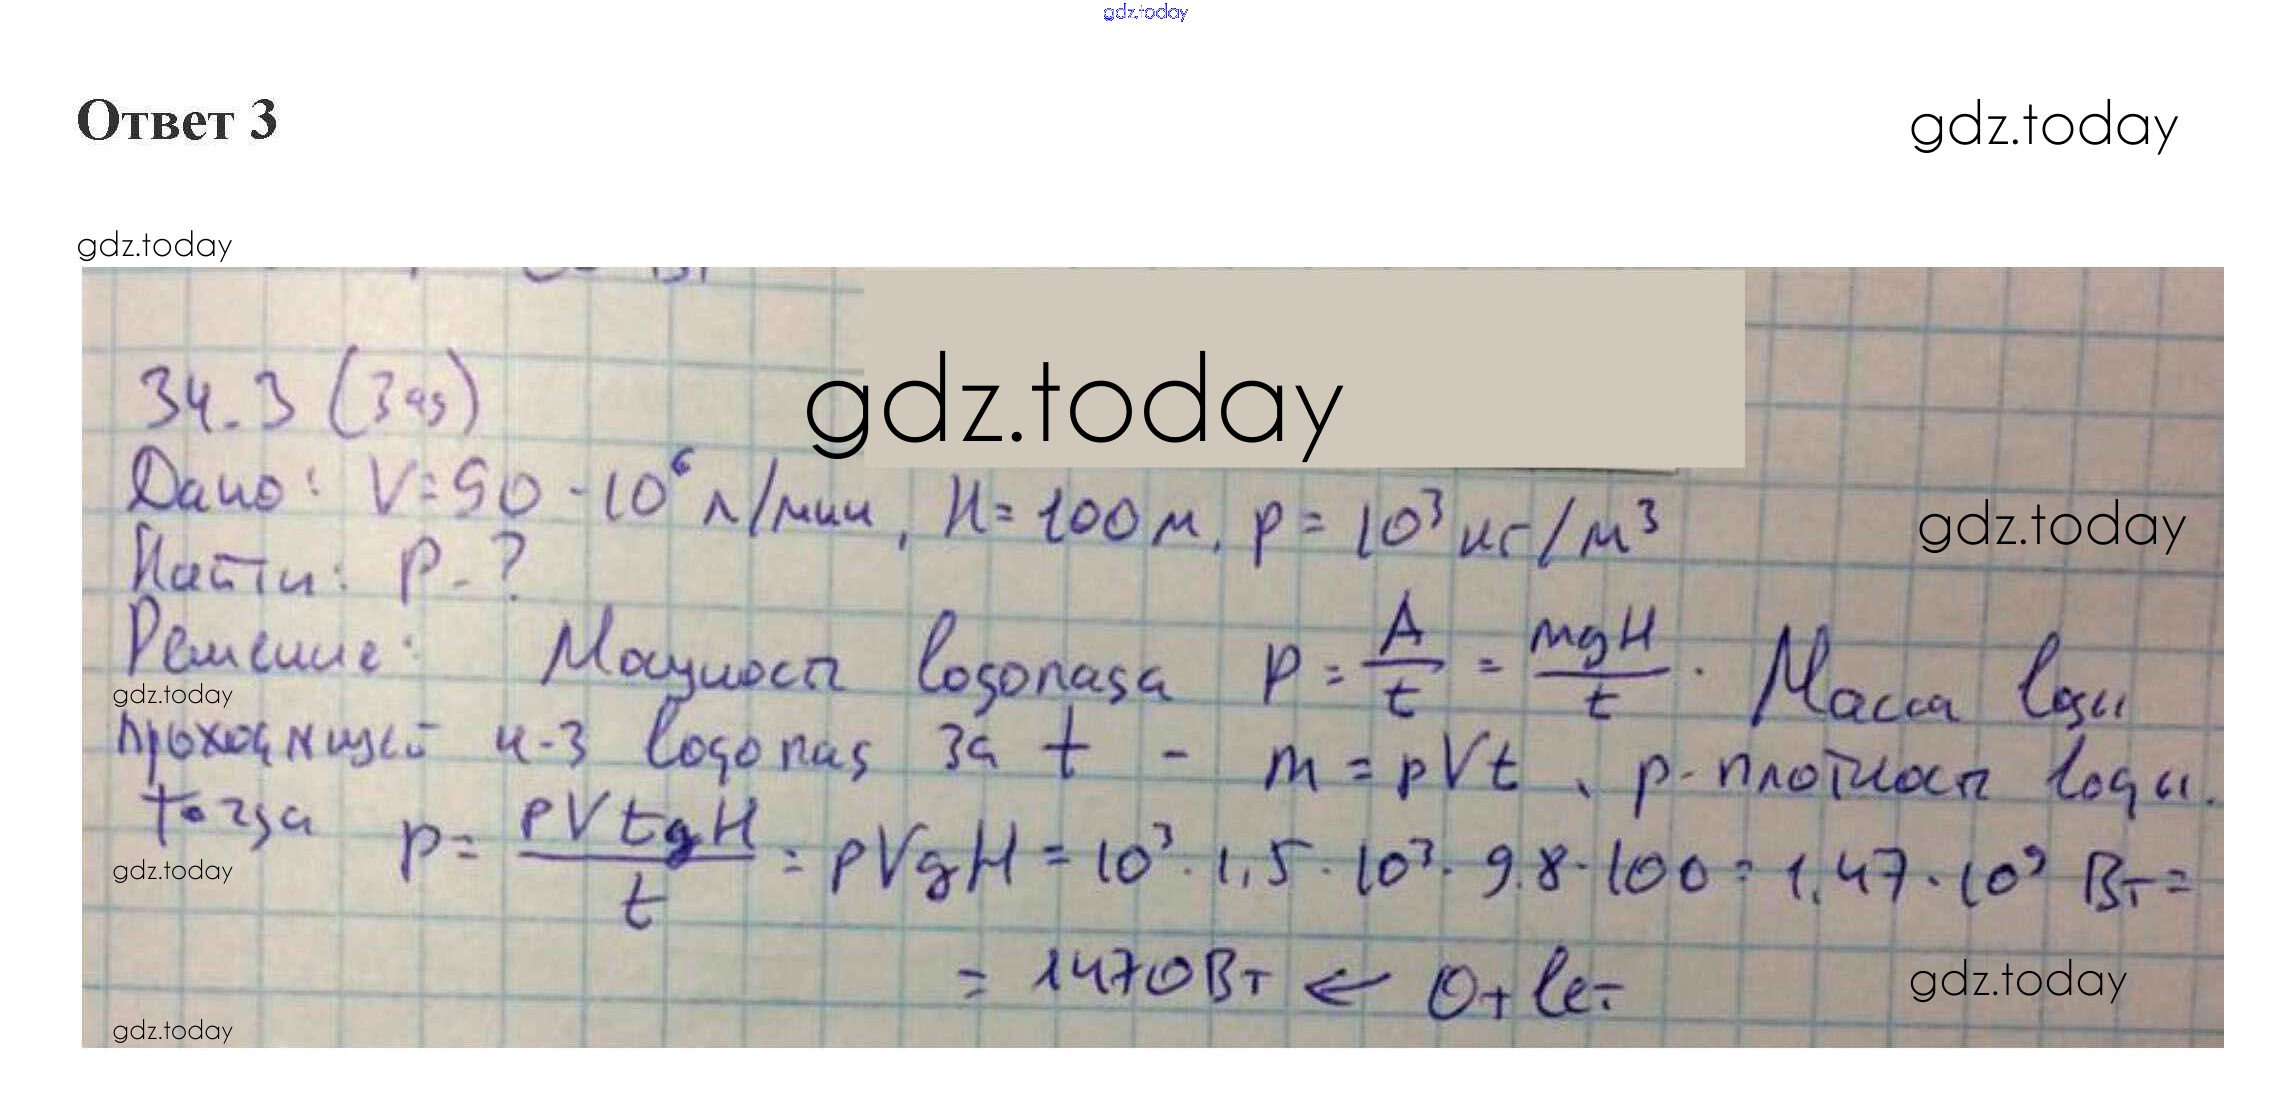 gdz.today
Ответ 3
gdz.today
gdz.today
34.3 (Зад)
gdz.today
Дано: V=90·10⁶ л/мин, H=100м, ρ=10³ кг/м³
gdz.today
Найти: P-?
Решение: Мощность водопада P = A/t = mgH/t. Масса воды
gdz.today
проходящей ч-з водопад за t - m=ρVt, ρ-плотность воды.
Тогда P = ρVtgH/t = ρVgH = 10³·1,5·10³·9.8·100 = 1.47·10⁹ Вт =
gdz.today
= 1470Вт ← Ответ
gdz.today
gdz.today